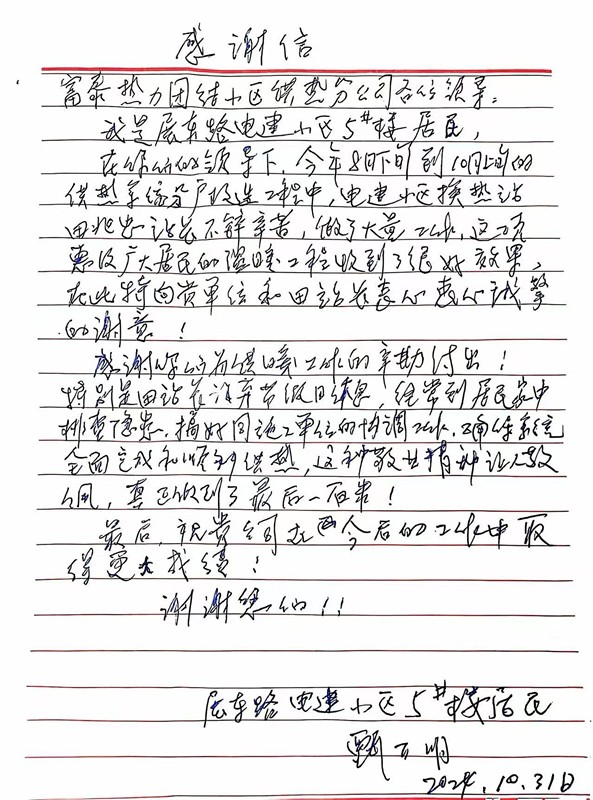 感谢信
富泰热力团结小区供热分公司各位领导:
我是展东路电建小区5#楼居民,
在你们的领导下,今年8月下旬到10月上旬的
供热系统分户改造工程中,电建小区换热站
田站长不辞辛苦,做了大量工作,这一项
惠及广大居民的温暖工程收到了很好效果,
在此特向贵单位和田站长表心衷心诚挚
的谢意!
感谢你们为供暖工作的辛勤付出!
特别是田站长放弃节假日休息,经常到居民家中
排查隐患,搞好同施工单位的协调工作,确保系统
全面完成和顺利供热,这种敬业精神让人敬
佩,真正做到了最后一百米!
最后,祝贵公司在今后的工作中取
得更大成绩!
谢谢您们!!
展东路电建小区5#楼居民
甄百明
2024.10.31日